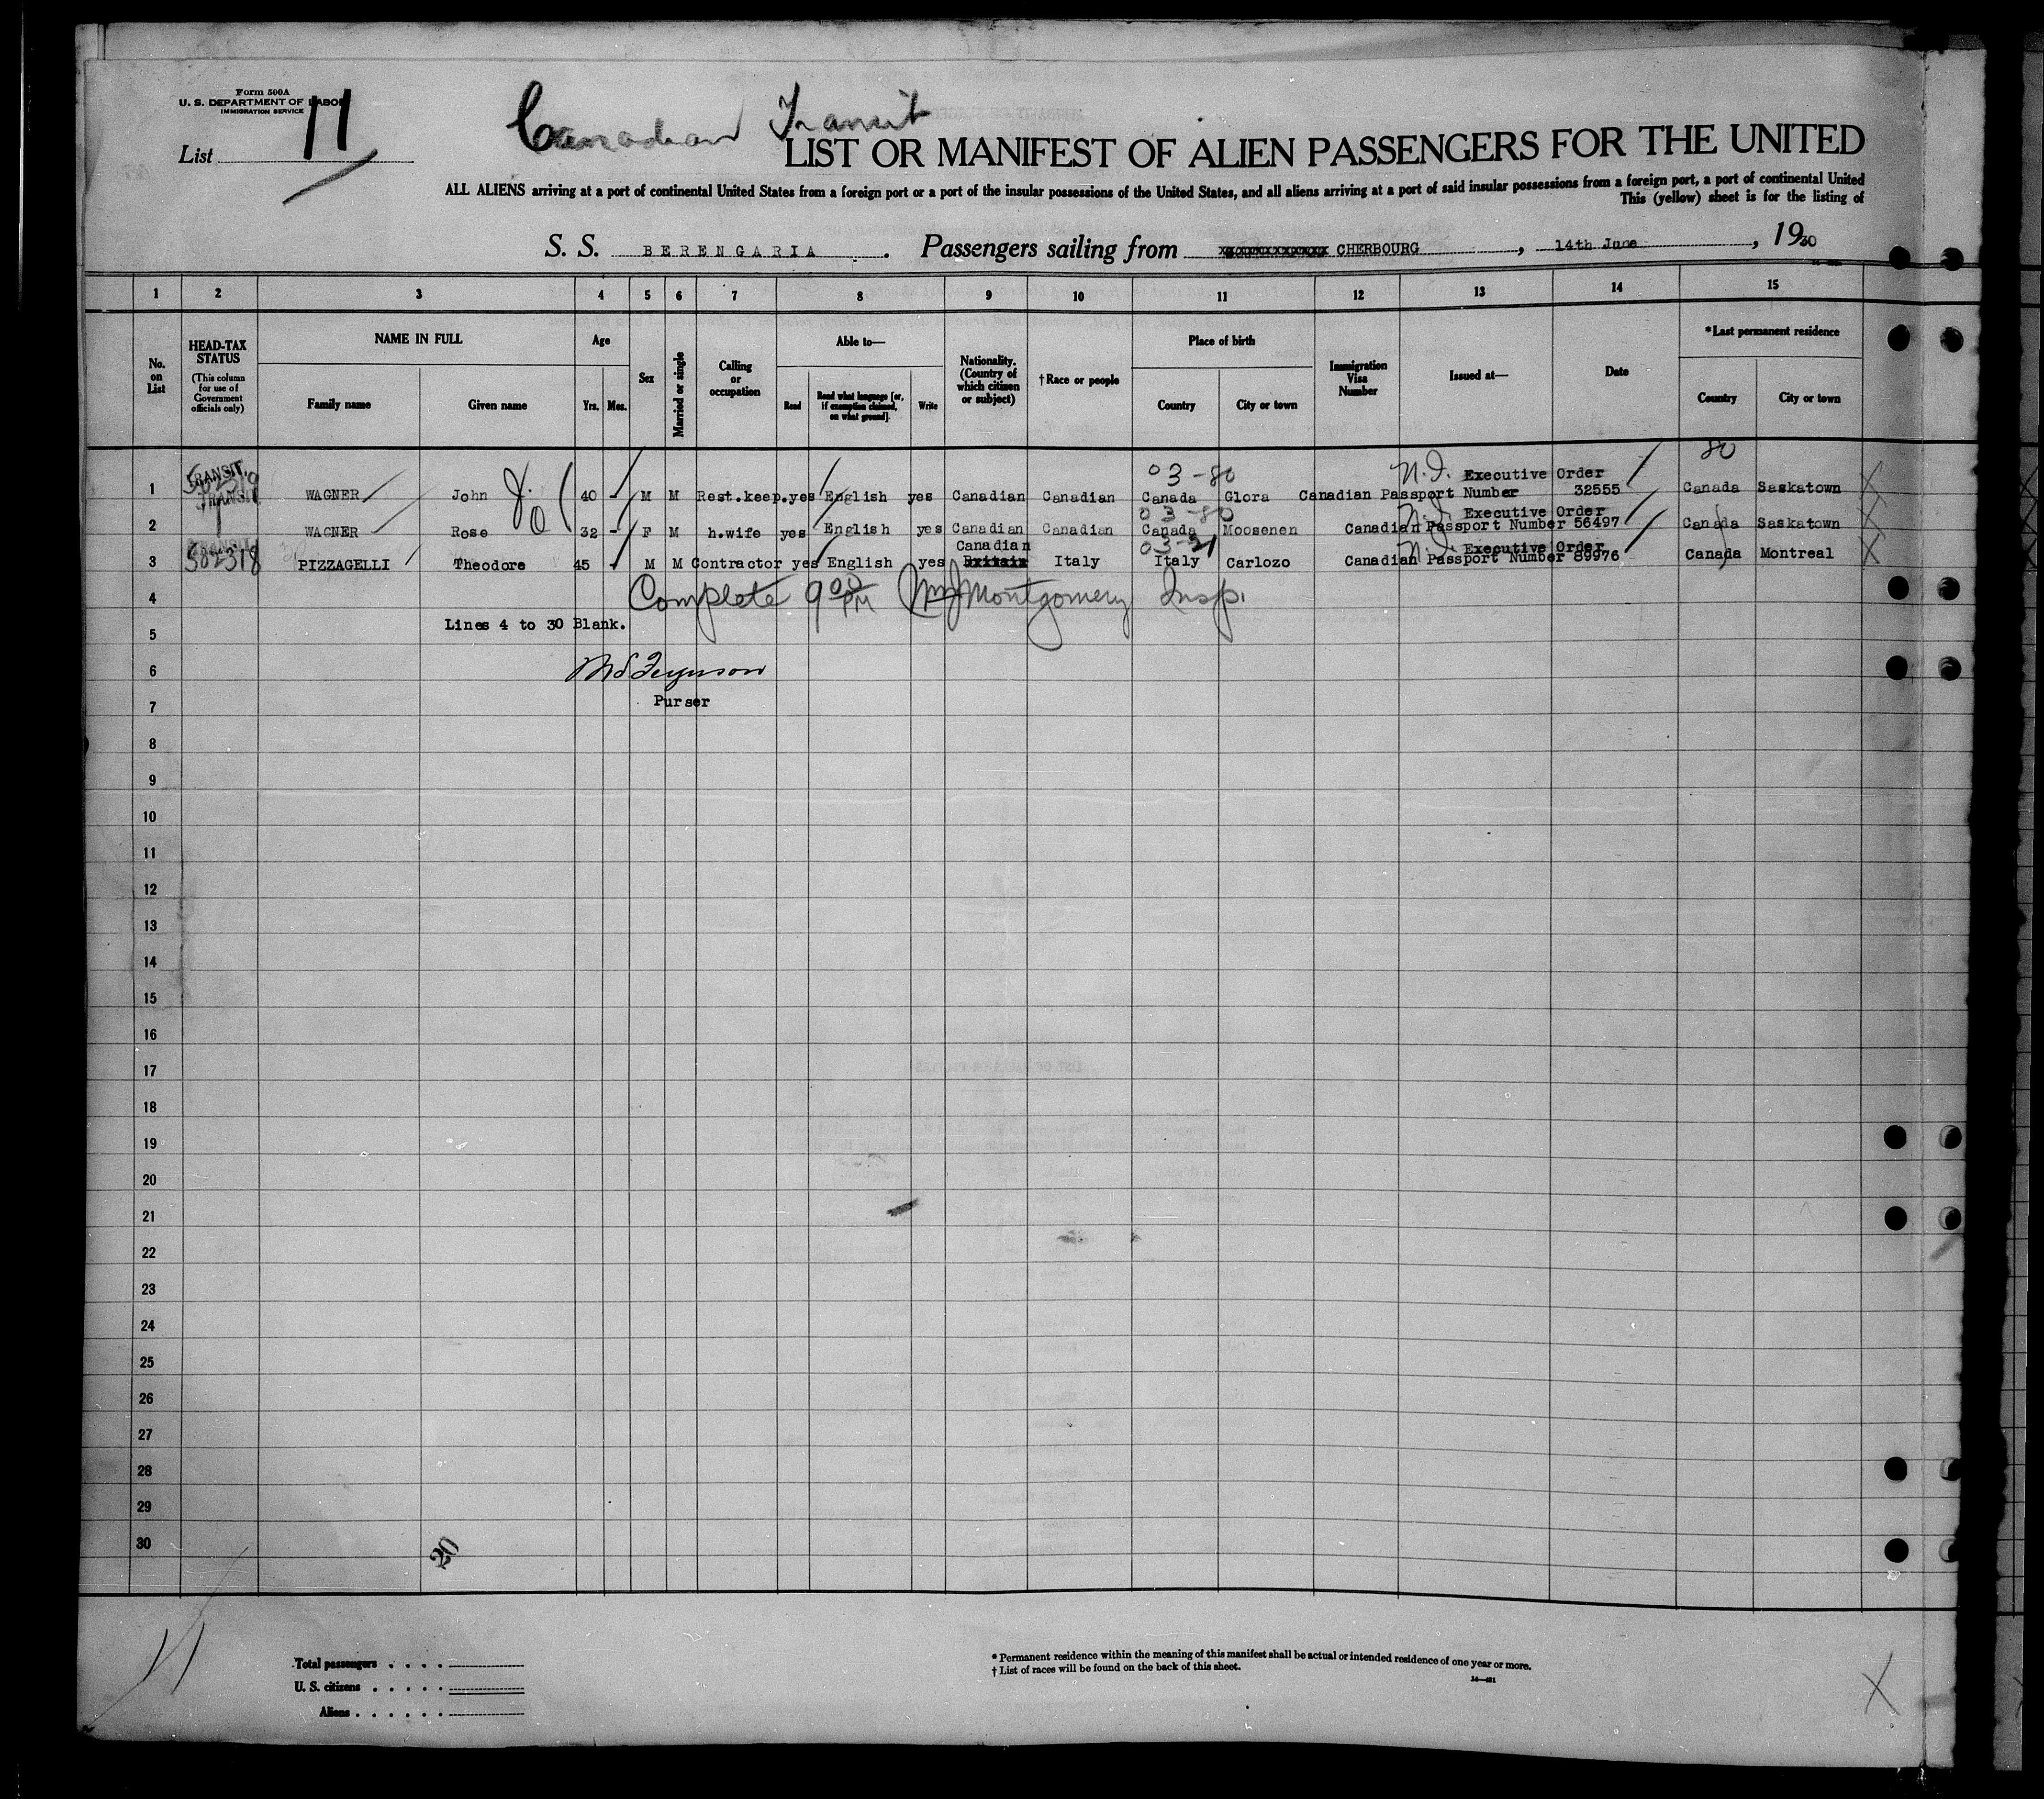 Form 500A
U. S. DEPARTMENT OF LABOR
IMMIGRATION SERVICE
List 11
Canadian Transit
LIST OR MANIFEST OF ALIEN PASSENGERS FOR THE UNITED
ALL ALIENS arriving at a port of continental United States from a foreign port or a port of the insular possessions of the United States, and all aliens arriving at a port of said insular possessions from a foreign port, a port of continental United
This (yellow) sheet is for the listing of
S. S. BERENGARIA. Passengers sailing from CHERBOURG, 14th June, 1930
1 2 3 4 5 6 7 8 9 10 11 12 13 14 15
No. on List
HEAD-TAX STATUS (This column for use of Government officials only)
NAME IN FULL
Family name Given name
Age
Yrs. Mos.
Sex
Married or single
Calling or occupation
Able to—
Read Read what language [or, if exemption claimed, on what ground] Write
Nationality. (Country of which citizen or subject)
†Race or people
Place of birth
Country City or town
Immigration Visa Number
Issued at—
Date
*Last permanent residence
Country City or town
80
TRANSIT. 03-80 N.I. Executive Order
1 TRANSIT WAGNER John 40 - M M Rest.keep. yes English yes Canadian Canadian Canada Glora Canadian Passport Number 32555 Canada Saskatown
03-80 N.I. Executive Order
2 WAGNER Rose 32 - F M h.wife yes English yes Canadian Canadian Canada Moosenen Canadian Passport Number 56497 Canada Saskatown
Canadian 03-21 N.I. Executive Order
3 502318 PIZZAGELLI Theodore 45 - M M Contractor yes English yes Britain Italy Italy Carlozo Canadian Passport Number 89976 Canada Montreal
4 Complete 9 00 PM Montgomery Insp.
Lines 4 to 30 Blank.
5
6 Ferguson
Purser
7
8
9
10
11
12
13
14
15
16
17
18
19
20
21
22
23
24
25
26
27
28
29
30
20
11
Total passengers
U. S. citizens
Aliens
* Permanent residence within the meaning of this manifest shall be actual or intended residence of one year or more.
† List of races will be found on the back of this sheet.
X